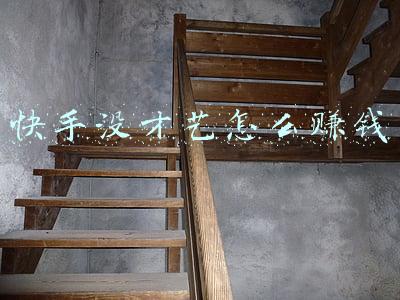 快手没才艺怎么赚钱